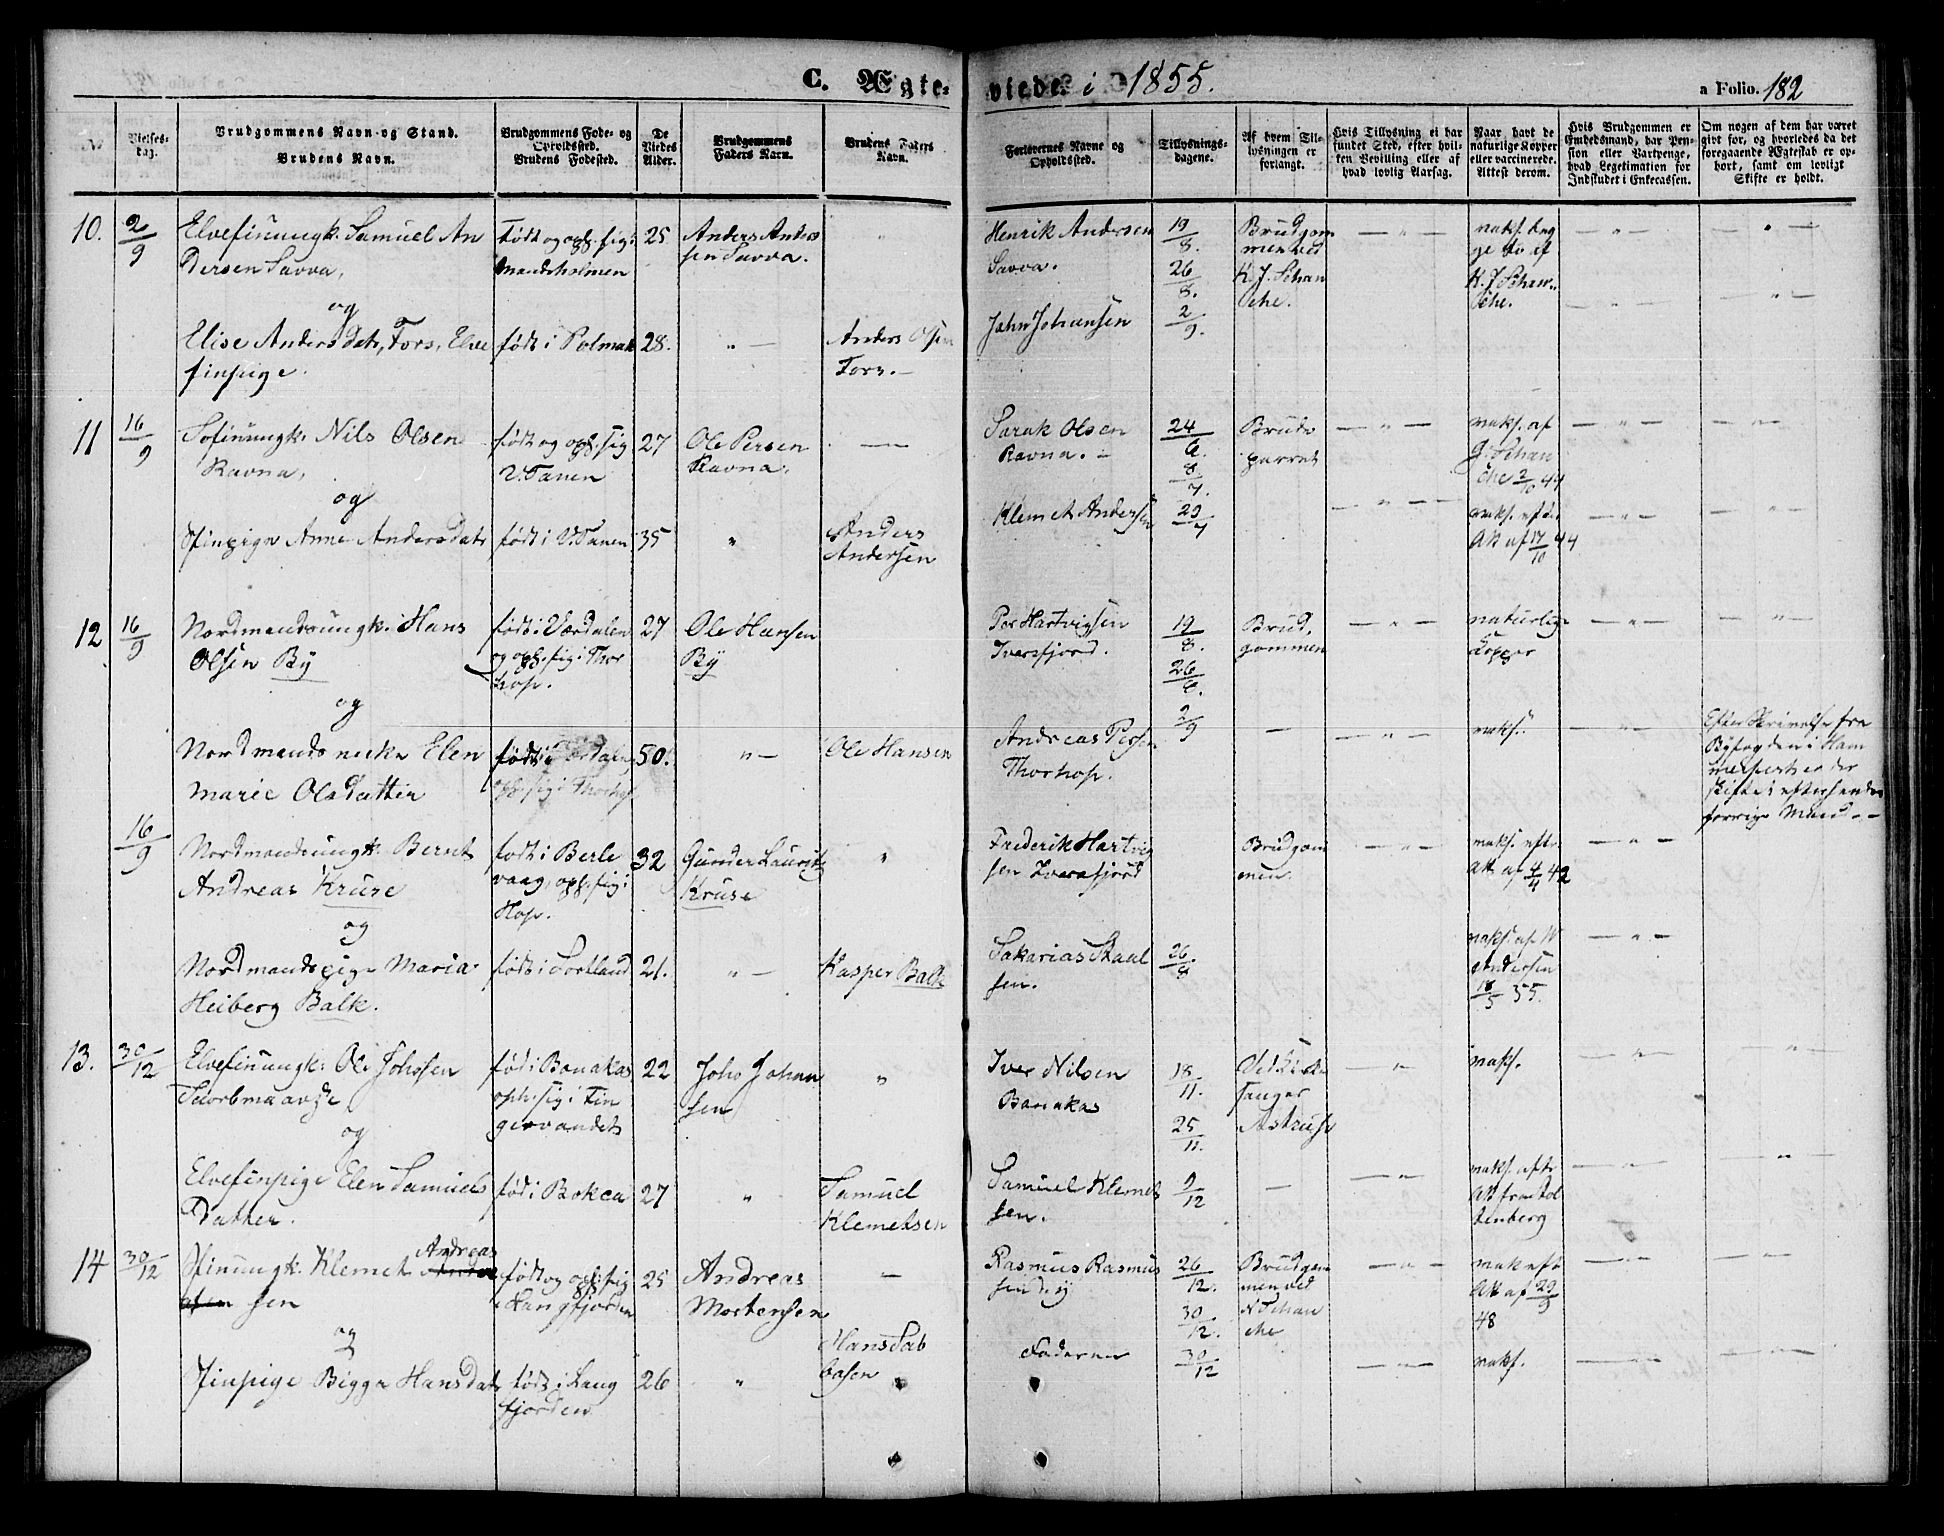 C. Ægteviede i 1855.
a Folio. 182
No
Vielses-
dag.
Brudgommens Navn og Stand.
Brudens Navn.
Brudgommens Føde- og
Opholdssted.
Brudens Fødested.
De
Viedes
Alder.
Brudgommens
Faders Navn.
Brudens Faders
Navn.
Forlovernes Navne og
Opholdssted.
Tillysnings-
dagene.
Af hvem Til-
lysningen er
forlangt.
Hvis Tillysning ei har
fundet Sted, efter hvil-
ken Bevilling eller af
hvad lovlig Aarsag.
Naar havt de
naturlige Kopper
eller vaccinerede.
Attest derom.
Hvis Brudgommen er
Embedsmand, har Pen-
sion eller Vartpenge,
hvad Legetimation for
Indskudet i Enkecassen.
Om nogen af dem har været
givt for, og hvorledes da det
foregaaende Ægteskab er op-
hørt, samt om lovligt
Skifte er holdt.
10.
2/9
Elvefinungk. Samuel An
dersen Savva,
og
Elise Andersdatr, Fors, Elve
finpige.
født og oph. sig i
Mandsholmen
født i Polmak
25
28.
Anders Ander
sen Savva.
Anders Olsen
Fors.
Henrik Andersen
Savva.
John Johansen
19/8.
26/8.
2/9.
Brudgom
men ved
K. J. Schan
che.
vaks. beg
ge to af
K. J. Schan
che.
11
16/9
Søfinungk. Nils Olsen
Ravna,
og
Sfinpige Anne Andersdatr
født og oph. sig
V. Tanen
født i V. Tanen
27
35
Ole Persen
Ravna,
Anders
Andersen
Sarak Olsen
Ravna.
Klemet Andersen
24/6.
8/7.
29/7
Brude
parret
vaks. af
G. Schan
che 2/10 44
vaks. efter
Att. af 17/10 44
12
16/9
Nordmandsungk. Hans
Olsen By
og
Nordmandsenke Elen
Marie Olsdatter
født i Værdalen
og oph. sig i Thor
hop.
født i
oph. sig i Thorhop
27
50.
Ole Hansen
By
Ole Hansen
Per Hartvigsen
Iversfjord.
Andreas Persen
Thorhop.
19/8.
26/8.
2/9
Brud,
gommen
naturlige
Kopper
vaks.
Efter Skrivelse fra
Byfogden i Ham
merfest er der
skifte i efter hendes
forrige Mand
16/9
Nordmandsungk. Bernt
Andreas Kruse
og
Nordmandspige Maria
Heiberg Balk.
født i Berle
vaag, oph. sig i
Hop.
født i Sortland
32
21.
Gunder Lauritz
Kruse
Kasper Balk
Frederik Hartvig
sen Iversfjord
Sakarias Staal
sen.
26/8
Brudgom
men.
vaks. eft.
Att. af 4/4 42
vaks. af N
Andersen
18/5 55.
13.
30/12
Elvefinungk. Ole Johssen
Skorbmaavze,
og
Elvefinpige Elen Samuels
Datter.
fød i Bonakas
oph. sig i Fin
gervandet
fød i Bokca
22
27
Johs Johan
sen
Samuel
Klemetsen
Iver Nilsen
Bonakas
Samuel Klemet
sen.
18/11.
25/11.
9/12
Ved Kirke
sanger
Astrup
vaks.
vaks. efter
Att fra Stol
tenberg
14
30/12
Sfinungk. Klemet Andreas
sen
og
Sfinpige Bigge Hansdatr
født og oph. sig
i Langfjorden
født i Lang
fjorden
25
26
Andreas
Mortensen
Hans Sab
basen
Rasmus Rasmus
sen
Faderen
26/12.
30/12.
30/12
Brudgom
men ved
N Schan
che
vak eft
Att af 29/9
48
vaks.